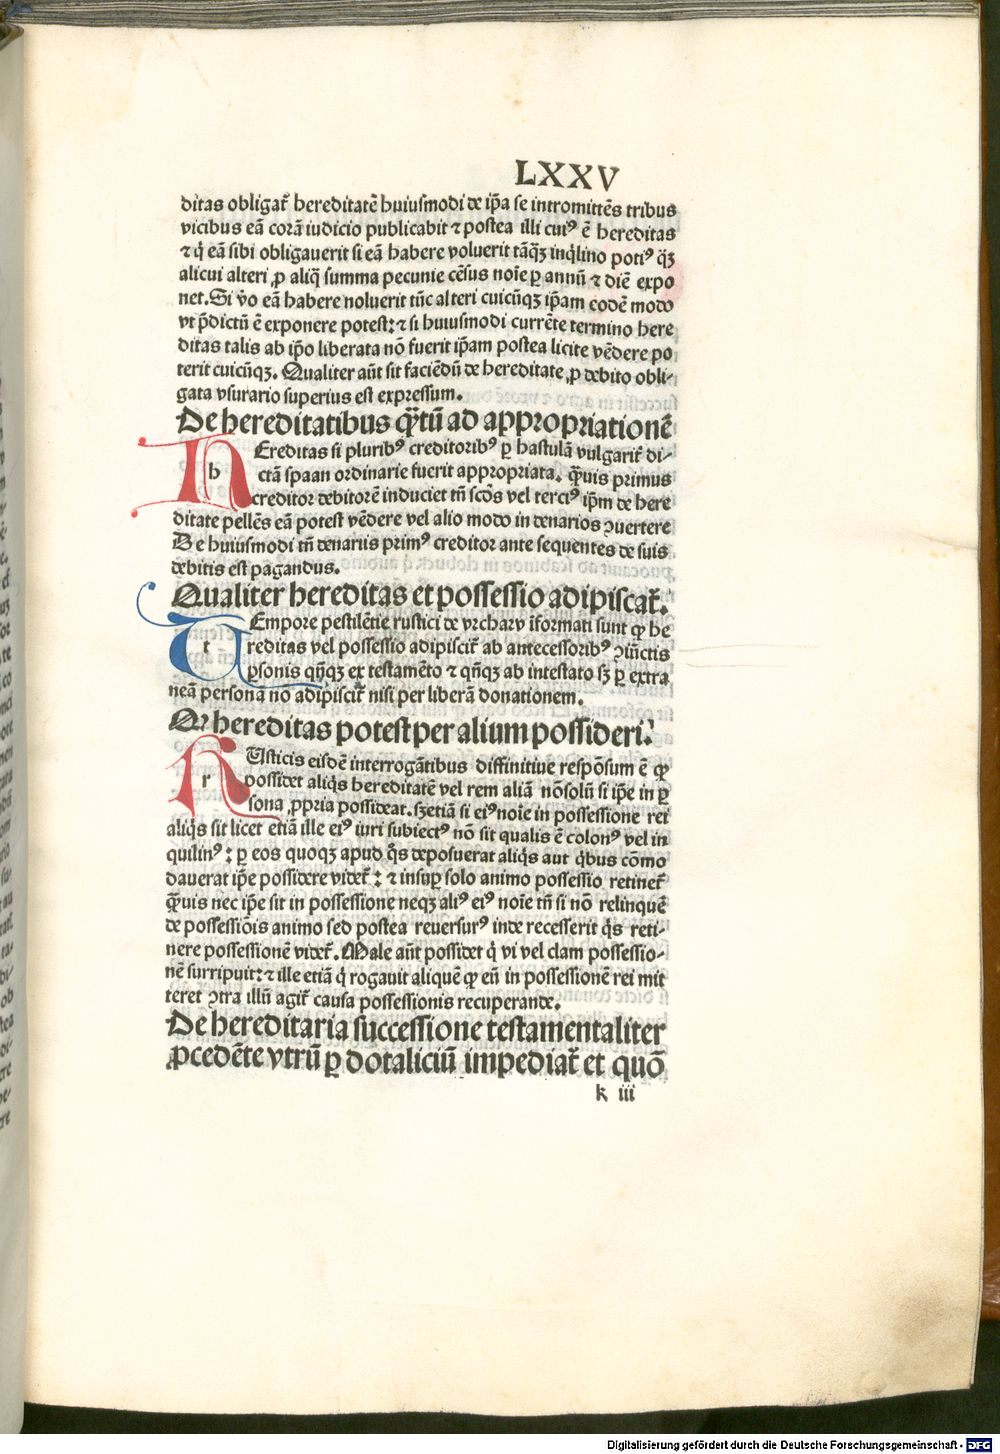 LXXV
ditas obligat᷑ hereditatē huiusmodi de ip̄a se intromittēs tribus
vicibus eā corā iudicio publicabit ⁊ postea illi cuiꝰ ē hereditas
⁊ q̇ eā sibi obligauerit si eā habere voluerit tāq̄ꝫ inq̇lino potiꝰ q̄ꝫ
alicui alteri ꝓ aliq̄ summa pecunie cēsus noīe ꝑ annū ⁊ diē expo
net. Si v̄o eā habere noluerit tūc alteri cuicūqꝫ ip̄am eodē modo
vt p̄dictū ē exponere potest: ⁊ si huiusmodi currēte termino here
ditas talis ab ip̄o liberata nō fuerit ip̄am postea licite vēdere po
terit cuicūqꝫ. Qualiter aūt sit faciēdū de hereditate ꝓ debito obli-
gata vsurario superius est expressum.
De hereditatibus q̄tū ad appropriationē
h Ereditas si pluribꝰ creditoribꝰ ꝑ hastulā vulgarit᷑ di-
ctā spaan ordinarie fuerit appropriata. q̄uis primus
creditor debitorē induciet tn̄ scd̄s vel terciꝰ ip̄m de here
ditate pellēs eā potest vēdere vel alio modo in denarios ꝯuertere
De huiusmodi tn̄ denariis primꝰ creditor ante sequentes de suis
debitis est pagandus.
Qualiter hereditas et possessio adipiscat᷑.
t Empore pestilētie rustici de vrcharv īformati sunt ꝙ he
reditas vel possessio adipiscit᷑ ab antecessoribꝰ ꝯiūctis
ꝑsonis qn̄qꝫ ex testamēto ⁊ qn̄qꝫ ab intestato sꝫ ꝑ extra
neā persona nō adipiscit᷑ nisi per liberā donationem.
Qꝛ hereditas potest per alium possideri.
r Usticis eisdē interrogātibus diffinitiue respōsum ē ꝙ
possidet aliq̇s hereditatē vel rem aliā nōsolū si ip̄e in ꝑ
sona ꝓpria possideat. sꝫ etiā si eiꝰ noīe in possessione rei
aliq̇s sit licet etiā ille eiꝰ iuri subiectꝰ nō sit qualis ē colonꝰ vel in
quilinꝰ: ꝑ eos quoqꝫ apud q̇s deposuerat aliq̇s aut q̇bus cōmo
dauerat ip̄e possidere videt᷑: ⁊ insuꝑ solo animo possessio retinet᷑
q̄uis nec ip̄e sit in possessione neqꝫ aliꝰ eiꝰ noīe tn̄ si nō relinquē
de possessiōis animo sed postea reuersurꝰ inde recesserit q̇s reti-
nere possessionē videt᷑. Male aūt possidet q̇ vi vel clam possessio-
nē surripuit: ⁊ ille etiā q̇ rogauit aliquē ꝙ eū in possessionē rei mit
teret ꝯtra illū agit᷑ causa possessionis recuperande.
De hereditaria successione testamentaliter
ꝓcedēte vtrū ꝑ dotaliciū impediat᷑ et quō
k iii
Digitalisierung gefördert durch die Deutsche Forschungsgemeinschaft - DFG